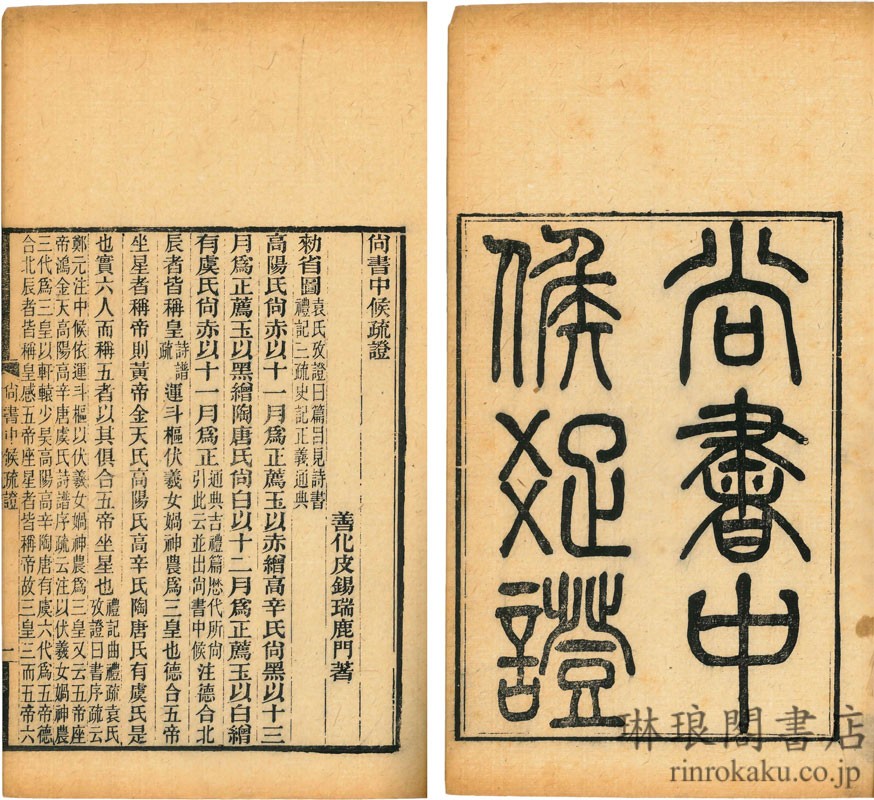 尚書中
候疏證
尙書中候疏證
善化皮錫瑞鹿門著
勑省圖袁氏攷證曰篇目見詩書禮記二疏史記正義通典
高陽氏尙赤以十一月爲正薦玉以赤繒高辛氏尙黑以十三
月爲正薦玉以黑繒陶唐氏尙白以十二月爲正薦玉以白繒
有虞氏尙赤以十一月爲正通典吉禮篇歷代所尙引此云並出尙書中候注德合北
辰者皆稱皇詩譜疏運斗樞伏羲女媧神農爲三皇也德合五帝
坐星者稱帝則黃帝金天氏高陽氏高辛氏陶唐氏有虞氏是
也實六人而稱五者以其俱合五帝坐星也禮記曲禮疏袁氏攷證曰書序疏云
鄭元注中候依運斗樞以伏羲女媧神農爲三皇又云五帝座
帝鴻金天高陽高辛唐虞氏詩譜序疏云注以伏羲女媧神農
三代爲三皇以軒轅少昊高陽高辛陶唐有虞六代爲五帝德
合北辰者皆稱皇感五帝座星者皆稱帝故三皇三而五帝六
尙書中候疏證 一
琳琅閣書店
rinrokaku.co.jp